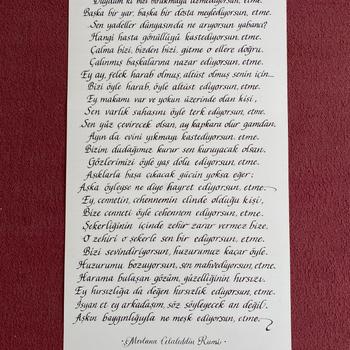 Duydum ki bizi bırakmaya azmediyorsun, etme.
Başka bir yar, başka bir dosta meylediyorsun, etme.
Sen yadeller dünyasında ne arıyorsun yabancı?
Hangi hasta gönüllüyü kastediyorsun, etme.
Çalma bizi, bizden bizi, gitme o ellere doğru.
Çalınmış başkalarına nazar ediyorsun, etme.
Ey ay, felek harab olmuş, altüst olmuş senin için...
Bizi öyle harab, öyle altüst ediyorsun, etme.
Ey makamı var ve yokun üzerinde olan kişi,
Sen varlık sahasını öyle terk ediyorsun, etme.
Sen yüz çevirecek olsan, ay kapkara olur gamdan.
Ayın da evini yıkmayı kastediyorsun, etme.
Bizim dudağımız kurur sen kuruyacak olsan.
Gözlerimizi öyle yaş dolu ediyorsun, etme.
Aşıklarla başa çıkacak gücün yoksa eğer;
Aşka öyleyse ne diye hayret ediyorsun, etme.
Ey, cennetin, cehennemin elinde olduğu kişi,
Bize cenneti öyle cehennem ediyorsun, etme.
Şekerliğinin içinde zehir zarar vermez bize.
O zehiri o şekerle sen bir ediyorsun, etme.
Bizi sevindiriyorsun, huzurumuz kaçar öyle.
Huzurumu bozuyorsun, sen mahvediyorsun, etme.
Harama bulaşan gözüm, güzelliğinin hırsızı.
Ey hırsızlığa da değen hırsızlık ediyorsun, etme.
İsyan et ey arkadaşım, söz söyleyecek an değil.
Aşkın baygınlığıyla ne meşk ediyorsun, etme.
Mevlana Celaleddin Rumi